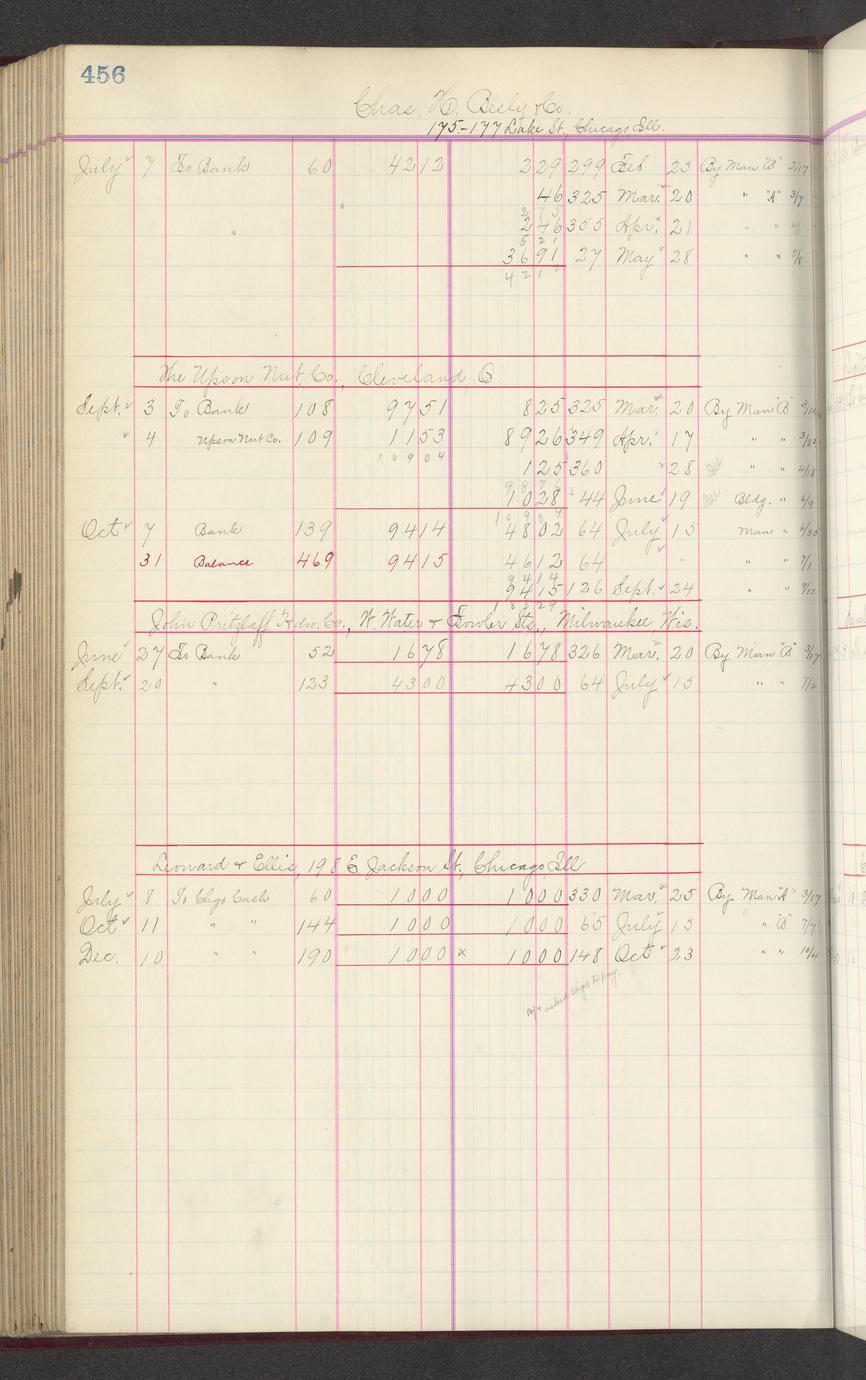 456
Chas. H. Besly & Co.
175-177 Lake St., Chicago Ill.
July 7 To Bank 60 42 12 2 29 299 Feb 25 By Man "B" 2/17
46 325 Mar. 20 " "A" 3/7
2 75
2 46 355 Apr. 21 " "
5 21
36 91 27 May 28 " " 5/8
42 12
The Upson Nut. Co., Cleveland, O.
Sept. 3 To Bank 108 97 51 8 25 325 Mar. 20 By Man "B"
4 Upson Nut Co. 109 11 53 89 26 349 Apr. 17 " "
109 04
1 25 360 " 28 " " 4/18
98 76
10 28 44 June 19 Bldg. " 6/9
109 04
Oct 7 Bank 139 94 14 48 02 64 July 15 Man " 6/30
31 Balance 469 94 15 46 12 64 " " " 7/1
94 14
94 15 126 Sept. 24 " " 9/12
188 29
John Pritzlaff Hdw. Co., W. Water & Fowler Sts., Milwaukee, Wis.
June 27 To Bank 52 16 78 16 78 326 Mar. 20 By Man "B" 3/17
Sept. 20 " 123 43 00 43 00 64 July 15 " " 7/2
Leonard & Ellis, 198 E. Jackson St., Chicago Ill
July 8 To Chgo Cash 60 10 00 10 00 330 Mar. 25 By Man "A" 3/17
Oct 11 " " 144 10 00 10 00 65 July 15 " "B" 7/7
Dec. 10 " " 190 10 00 x 10 00 148 Oct 23 " " 10/4
asked Chgo to pay.